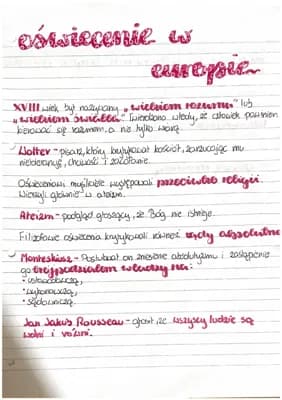 oświecenie w
europie
XVIII wiek był nazywany „wiekiem rozumu” lub
„wiekiem światła” Twierdzono wtedy, że człowek powinien
kierować się rozumem a nie tylko wiarą
Wolter - pisarz, który krytykował kościół, zarzucając mu
nietolerancję, chciwość i zacofanie.
Oświeceniowi myśliciele występowali przeciwko religii.
Wierzyli głównie w ateizm.
Ateizm - pogląd głoszący, że Bóg nie istnieje.
Filozofowie oświecenia krytykowali również rządy absolutne
Monteskiusz - Postulował on zniesienie absolutyzmu i zastąpienie
go trójpodziałem władzy na:
• ustawodawczą,
• wykonawczą,
• sądowniczą.
Jan Jakub Rousseau - głosił, że wszyscy ludzie są
wolni i równi.